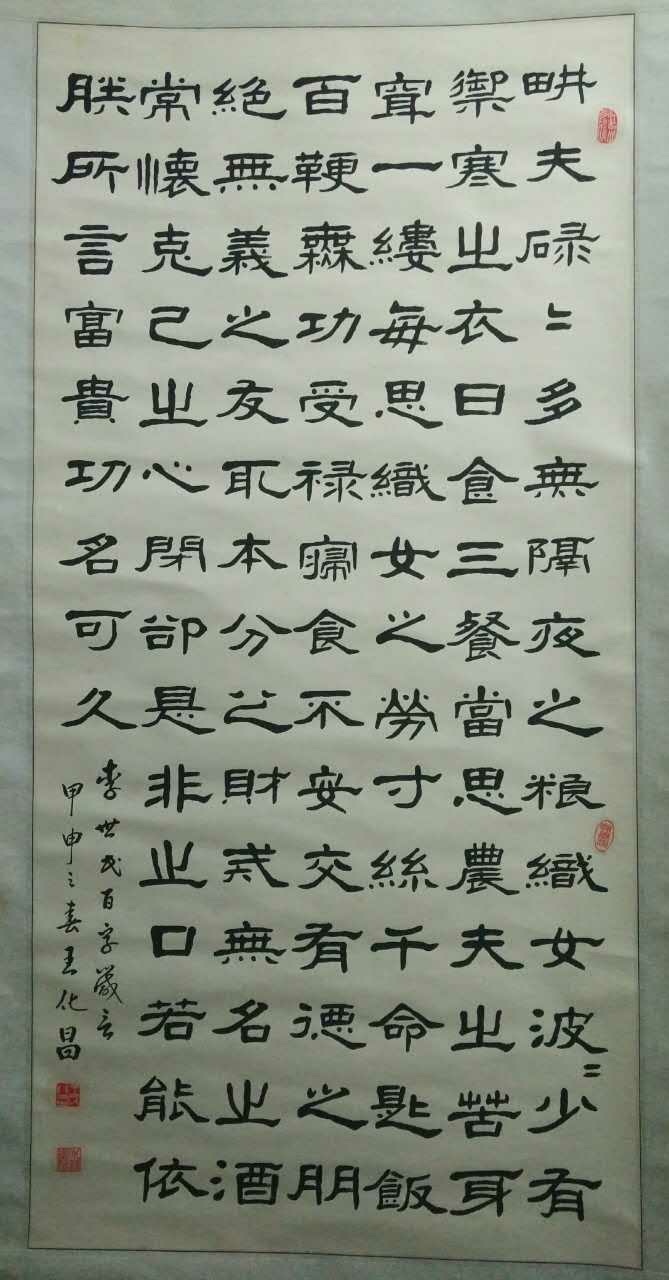 畊夫碌〻多無隔夜之粮織女波〻少有
禦寒之衣日食三餐當思農夫之苦身
穿一縷每思織女之勞寸絲千命匙飯
百鞭無功受禄寢食不安交有德之朋
絕無義之友取本分之財戒無名之酒
常懷克己之心閉卻是非之口若能依
朕所言富貴功名可久
李世民百字箴言
甲申之春王化昌